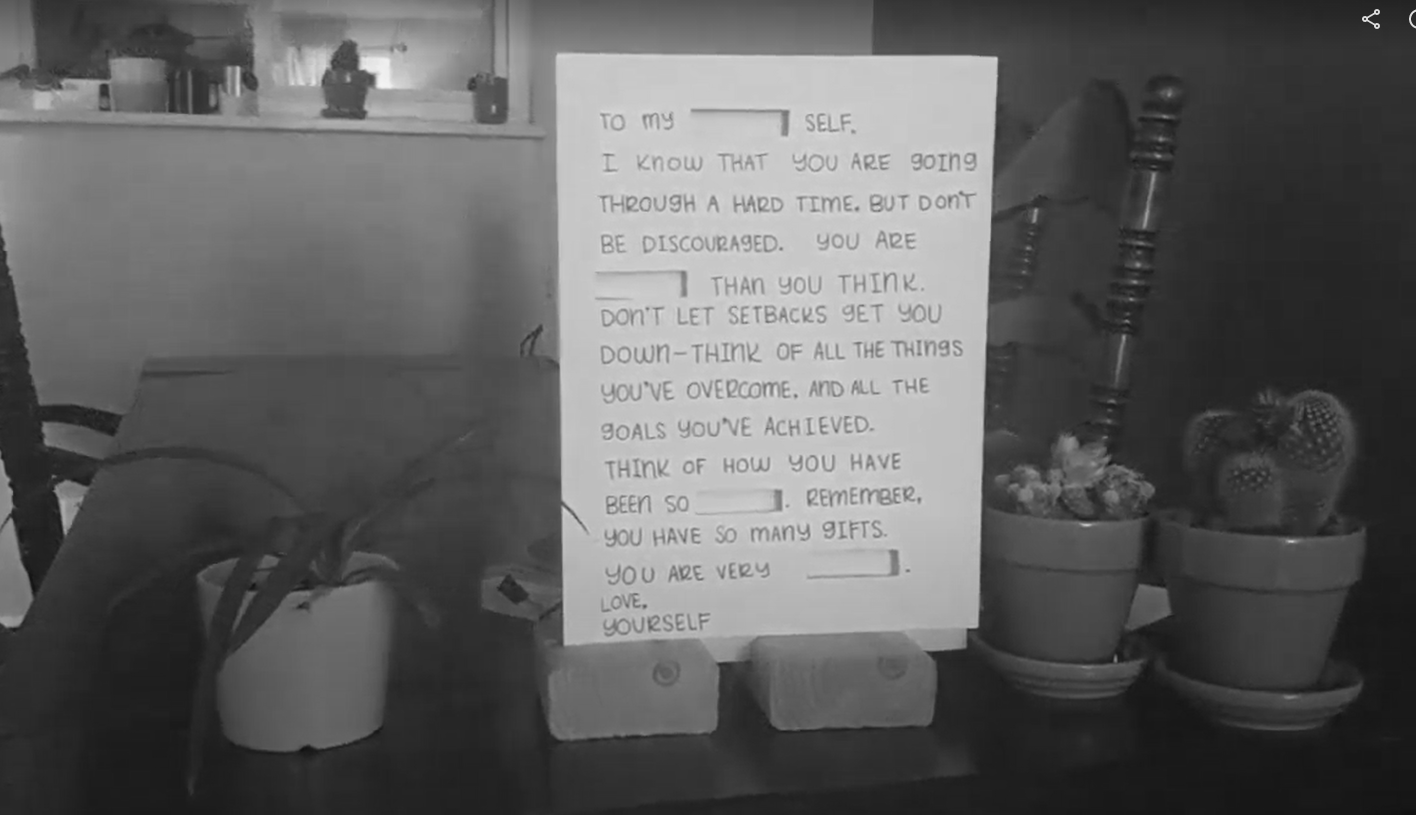 TO MY SELF.
I KNOW THAT YOU ARE GOING
THROUGH A HARD TIME. BUT DON'T
BE DISCOURAGED. YOU ARE
THAN YOU THINK.
DON'T LET SETBACKS GET YOU
DOWN-THINK OF ALL THE THINGS
YOU'VE OVERCOME, AND ALL THE
GOALS YOU'VE ACHIEVED.
THINK OF HOW YOU HAVE
BEEN SO . REMEMBER,
YOU HAVE SO MANY GIFTS.
YOU ARE VERY .
LOVE,
YOURSELF